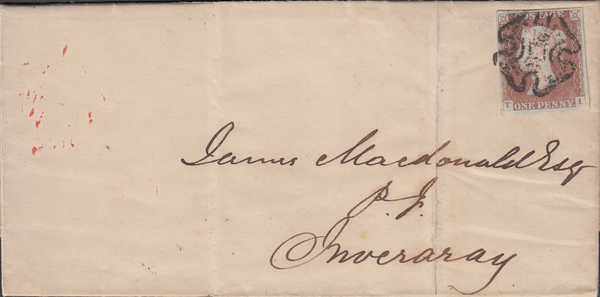 POSTAGE
T ONE PENNY I
James Macdonald Esq
P.F.
Inveraray